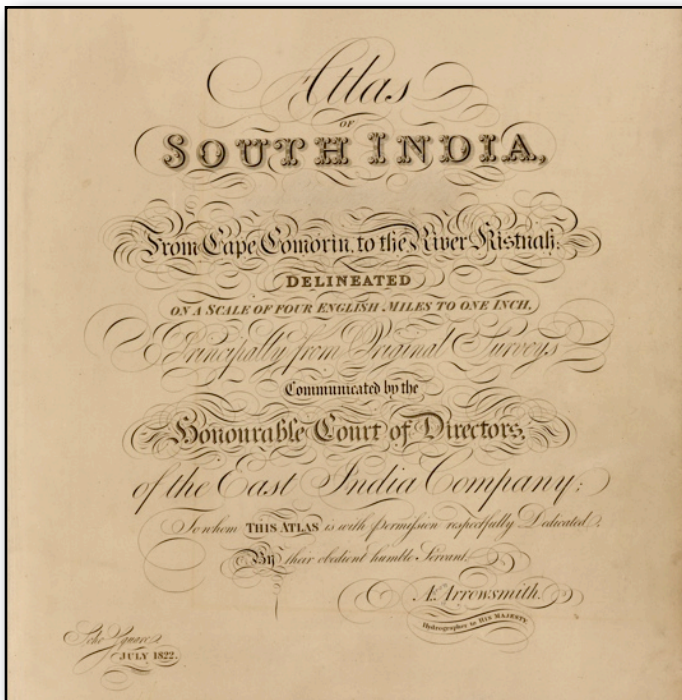 Atlas
OF
SOUTH INDIA,
From Cape Comorin, to the River Kistnah;
DELINEATED
ON A SCALE OF FOUR ENGLISH MILES TO ONE INCH,
Principally from Original Surveys
Communicated by the
Honourable Court of Directors,
of the East India Company;
To whom THIS ATLAS is with permission respectfully Dedicated,
By their obedient humble Servant,
A. Arrowsmith.
Hydrographer to HIS MAJESTY.
Soho Square,
JULY 1822.